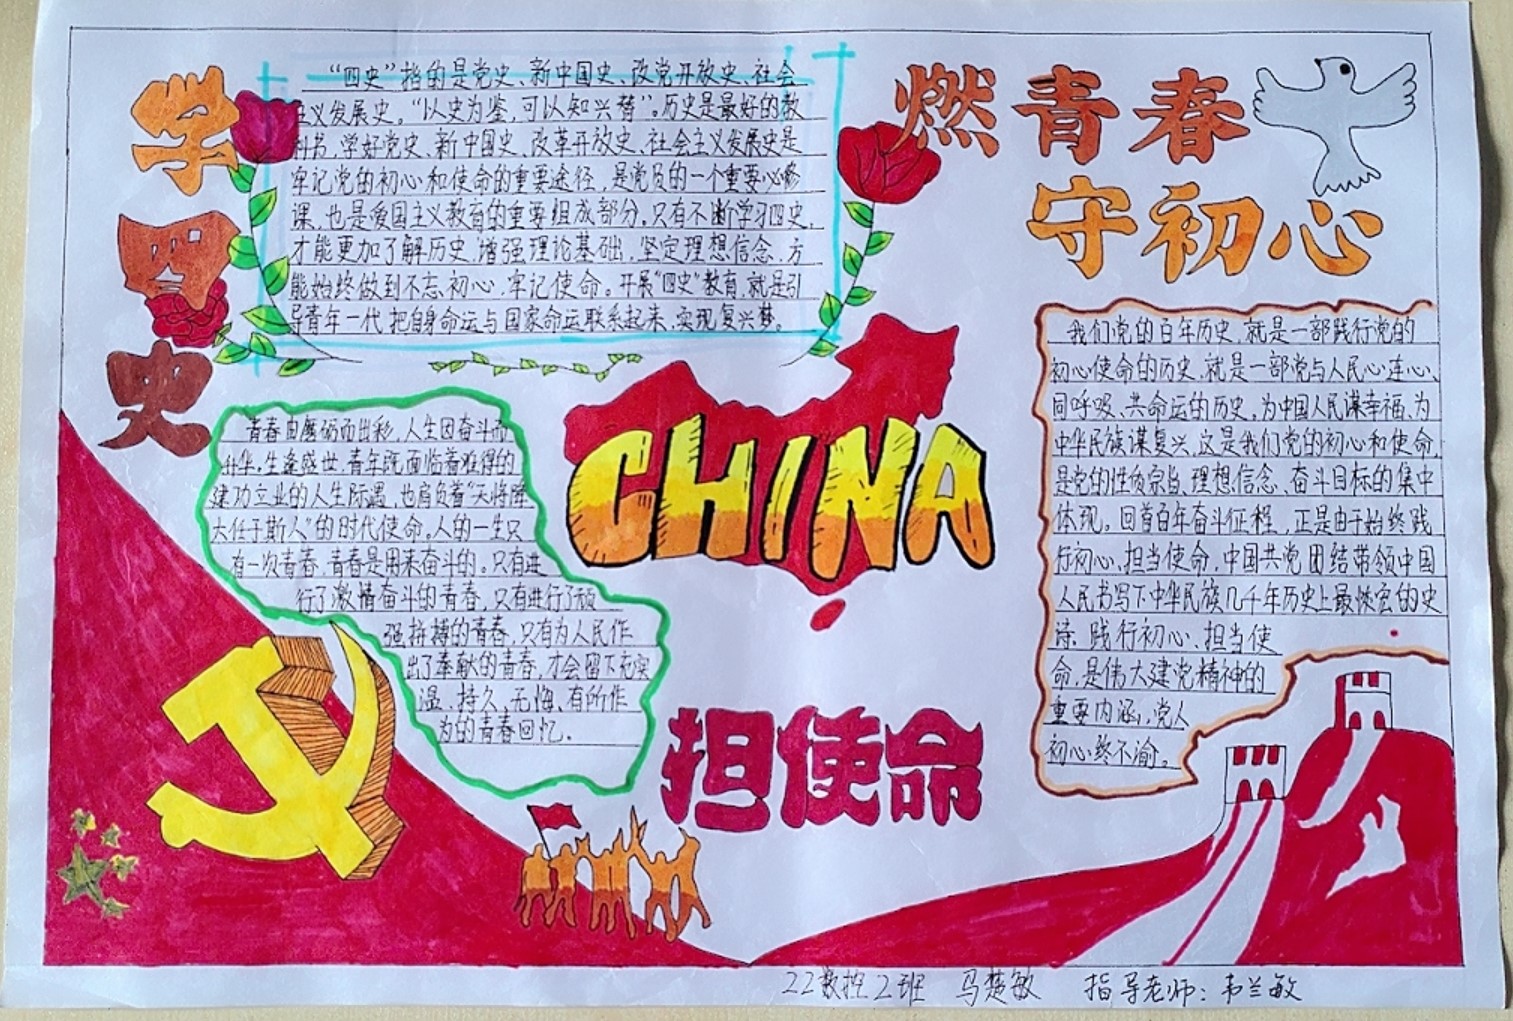 学四史
燃青春
守初心
担使命
CHINA
“四史”指的是党史、新中国史、改党开放史、社会
主义发展史。“以史为鉴,可以知兴替”。历史是最好的教
科书,学好党史、新中国史、改革开放史、社会主义发展史是
牢记党的初心和使命的重要途径,是党员的一个重要必修
课,也是爱国主义教育的重要组成部分,只有不断学习四史,
才能更加了解历史,增强理论基础,坚定理想信念,方
能始终做到不忘初心,牢记使命。开展“四史”教育,就是引
导青年一代,把自身命运与国家命运联系起来,实现复兴梦。
青春由磨砺而出彩,人生因奋斗而
升华。生逢盛世,青年既面临着难得的
建功立业的人生际遇,也肩负着“天将降
大任于斯人”的时代使命。人的一生只
有一次青春,青春是用来奋斗的。只有进
行了激情奋斗的青春,只有进行了顽
强拼搏的青春,只有为人民作
出了奉献的青春,才会留下充实
温、持久、无悔、有所作
为的青春回忆.
我们党的百年历史,就是一部践行党的
初心使命的历史,就是一部党与人民心连心、
同呼吸、共命运的历史,为中国人民谋幸福、为
中华民族谋复兴,这是我们党的初心和使命,
是党的性质宗旨、理想信念、奋斗目标的集中
体现。回首百年奋斗征程,正是由于始终践
行初心、担当使命,中国共党团结带领中国
人民书写下中华民族几千年历史上最恢宏的史
诗.践行初心、担当使
命,是伟大建党精神的
重要内涵,党人
初心终不渝。
22数控2班 马楚敏 指导老师:韦兰敏